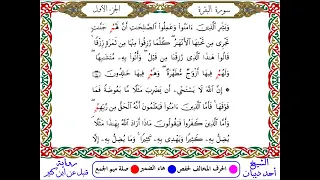 سورة البقرة الجزء الأول
وَبَشِّرِ ٱلَّذِينَ ءَامَنُوا۟ وَعَمِلُوا۟ ٱلصَّـٰلِحَـٰتِ أَنَّ لَهُمُۥ جَنَّـٰتٍ
تَجْرِى مِن تَحْتِهَا ٱلْأَنْهَـٰرُ كُلَّمَا رُزِقُوا۟ مِنْهَا مِن ثَمَرَةٍ رِّزْقًا
قَالُوا۟ هَـٰذَا ٱلَّذِى رُزِقْنَا مِن قَبْلُ وَأُتُوا۟ بِهِۦ مُتَشَـٰبِهًا
وَلَهُمُۥ فِيهَا أَزْوَٰجٌ مُّطَهَّرَةٌ وَهُمُۥ فِيهَا خَـٰلِدُونَ
إِنَّ ٱللَّهَ لَا يَسْتَحْىِۦ أَن يَضْرِبَ مَثَلًا مَّا بَعُوضَةً فَمَا
فَوْقَهَا فَأَمَّا ٱلَّذِينَ ءَامَنُوا۟ فَيَعْلَمُونَ أَنَّهُ ٱلْحَقُّ مِن رَّبِّهِمُۥ
وَأَمَّا ٱلَّذِينَ كَفَرُوا۟ فَيَقُولُونَ مَاذَا أَرَادَ ٱللَّهُ بِهَـٰذَا مَثَلًا
يُضِلُّ بِهِۦ كَثِيرًا وَيَهْدِى بِهِۦ كَثِيرًا وَمَا يُضِلُّ بِهِۦ إِلَّا
الشيخ أحمد ديبان
الحرف المخالف لحفص هاء الضمير صلة ميم الجمع
رواية قنبل عن ابن كثير